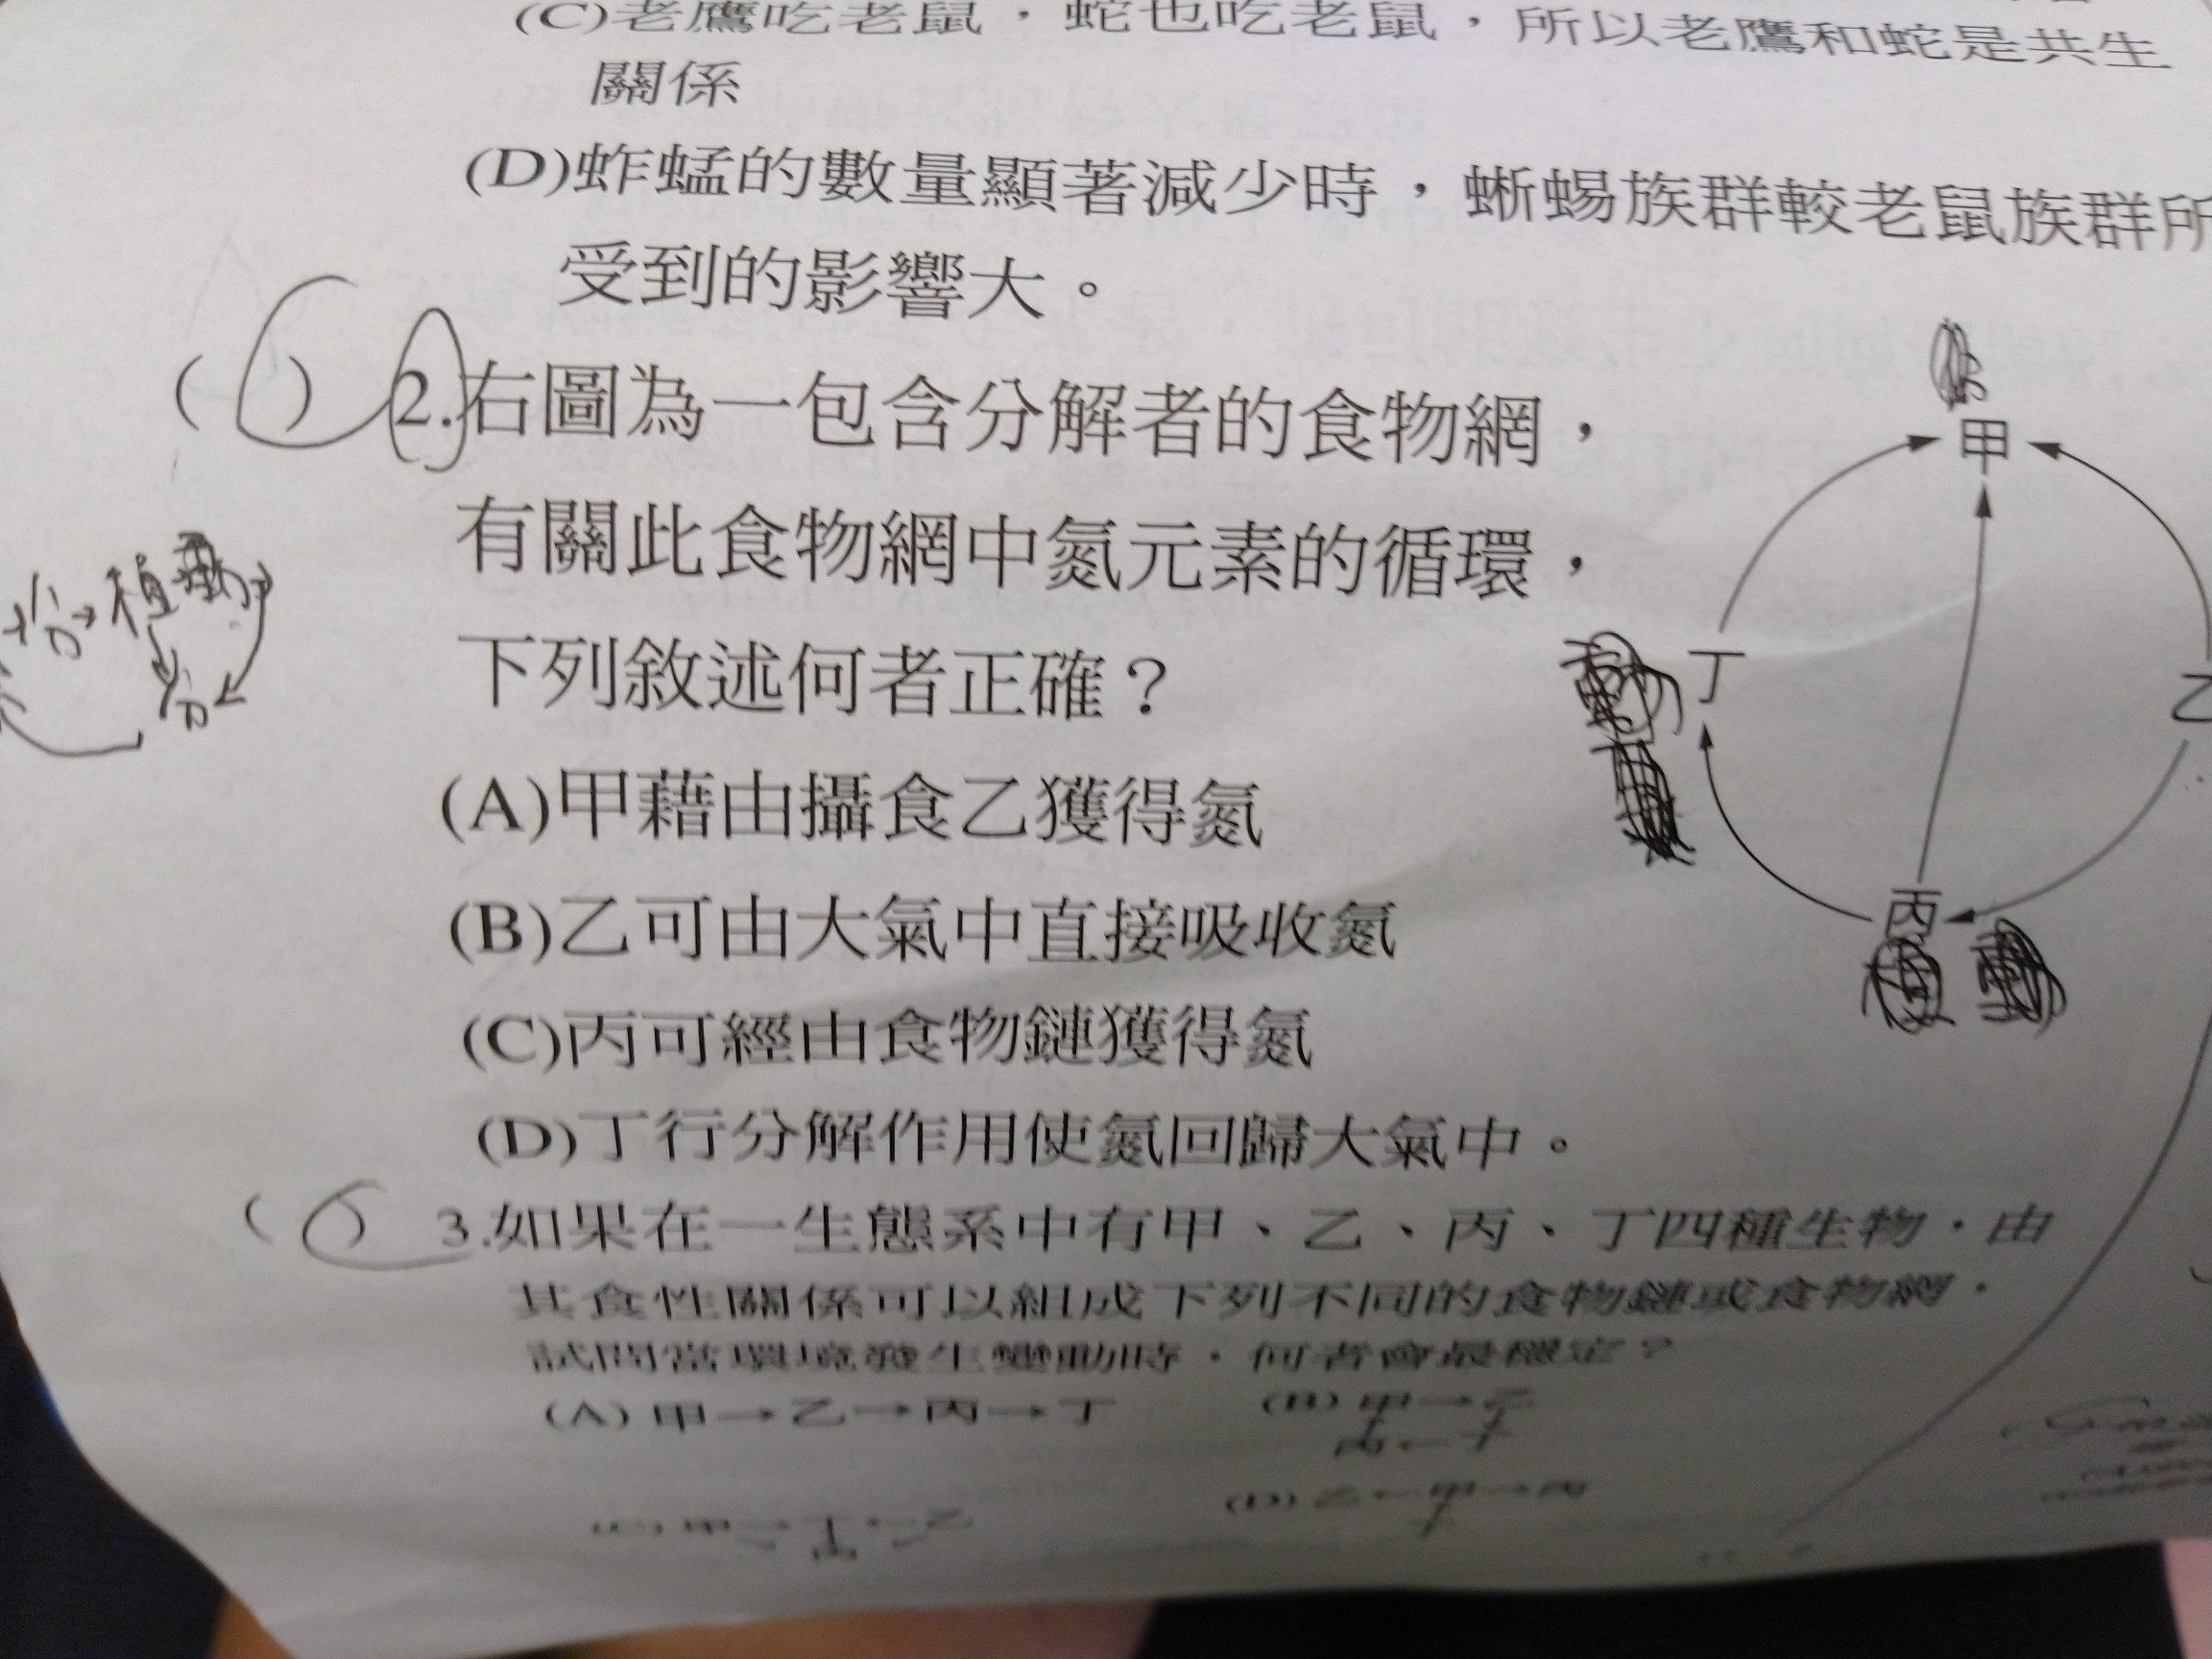 (C)老鷹吃老鼠，蛇也吃老鼠，所以老鷹和蛇是共生
關係
(D)蚱蜢的數量顯著減少時，蜥蜴族群較老鼠族群所
受到的影響大。
( ) 2.右圖為一包含分解者的食物網，
有關此食物網中氮元素的循環，
下列敘述何者正確？
(A)甲藉由攝食乙獲得氮
(B)乙可由大氣中直接吸收氮
(C)丙可經由食物鏈獲得氮
(D)丁行分解作用使氮回歸大氣中。
甲
丁
乙
丙
分→植
分
( ) 3.如果在一生態系中有甲、乙、丙、丁四種生物，由
其食性關係可以組成下列不同的食物鏈或食物網，
試問當環境發生變動時，何者會最穩定？
(A) 甲→乙→丙→丁
(B) 甲→乙
丙←丁
(D) 乙←甲→丙
丁